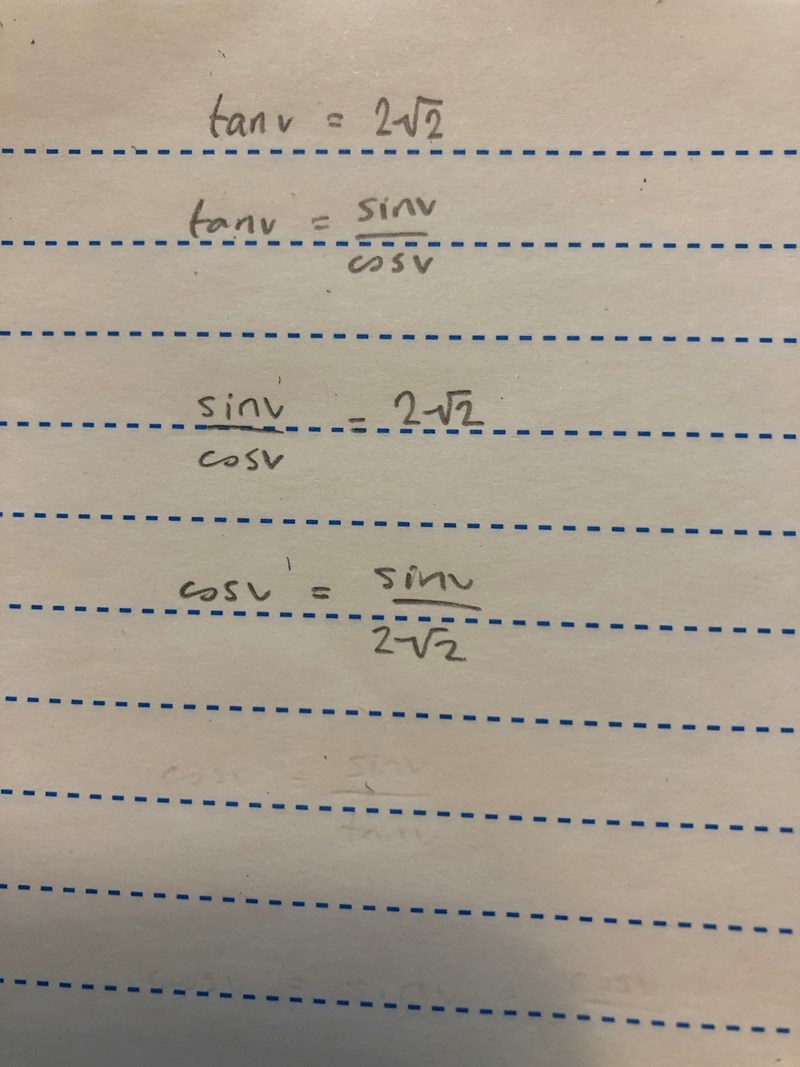 tan v = 2√2
tan v = sin v / cos v
sin v / cos v = 2√2
cos v = sin v / 2√2